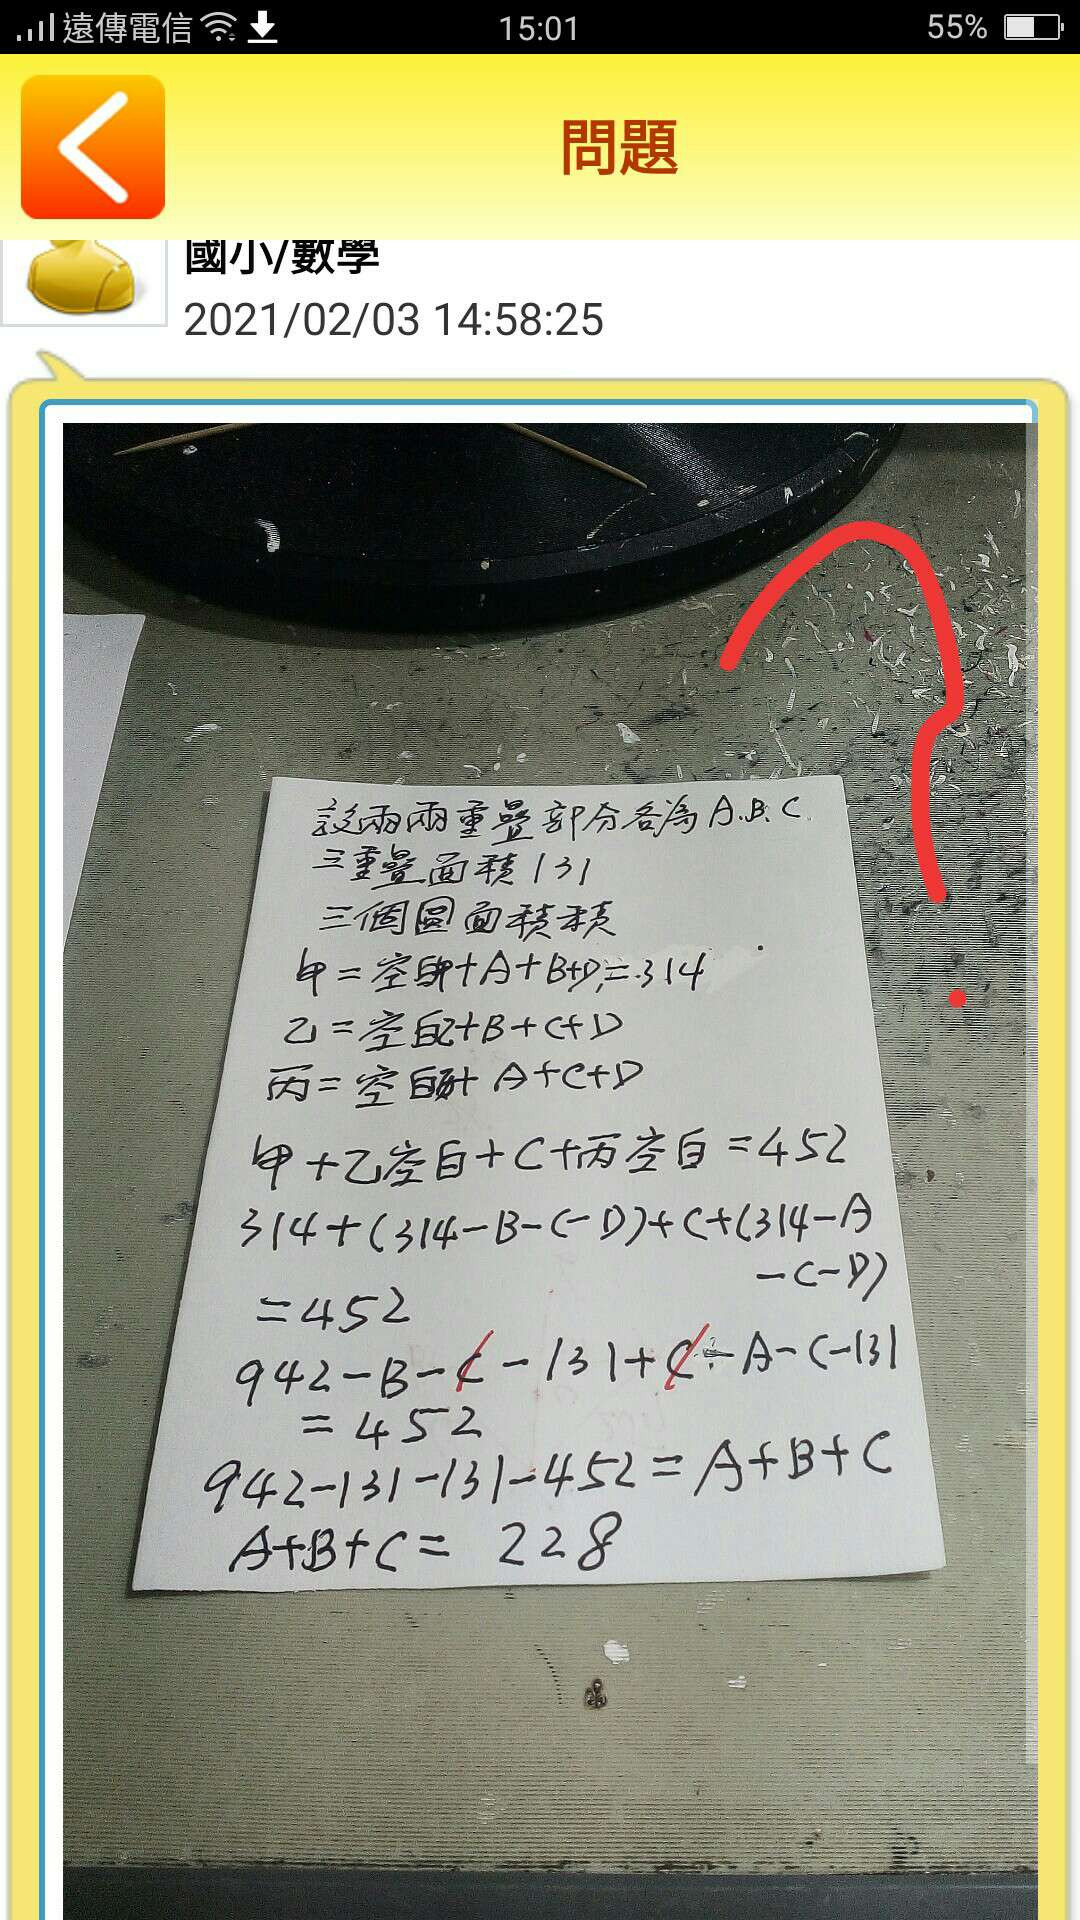 遠傳電信 15:01 55%
問題
國小/數學
2021/02/03 14:58:25
設兩兩重疊部分各為A.B.C.
三重疊面積131
三個圓面積積
甲=空白甲+A+B+D=314
乙=空白乙+B+C+D
丙=空白丙+A+C+D
甲+乙空白+C+丙空白=452
314+(314-B-C-D)+C+(314-A
-C-D)
=452
942-B-C-131+C-A-C-131
=452
942-131-131-452=A+B+C
A+B+C= 228